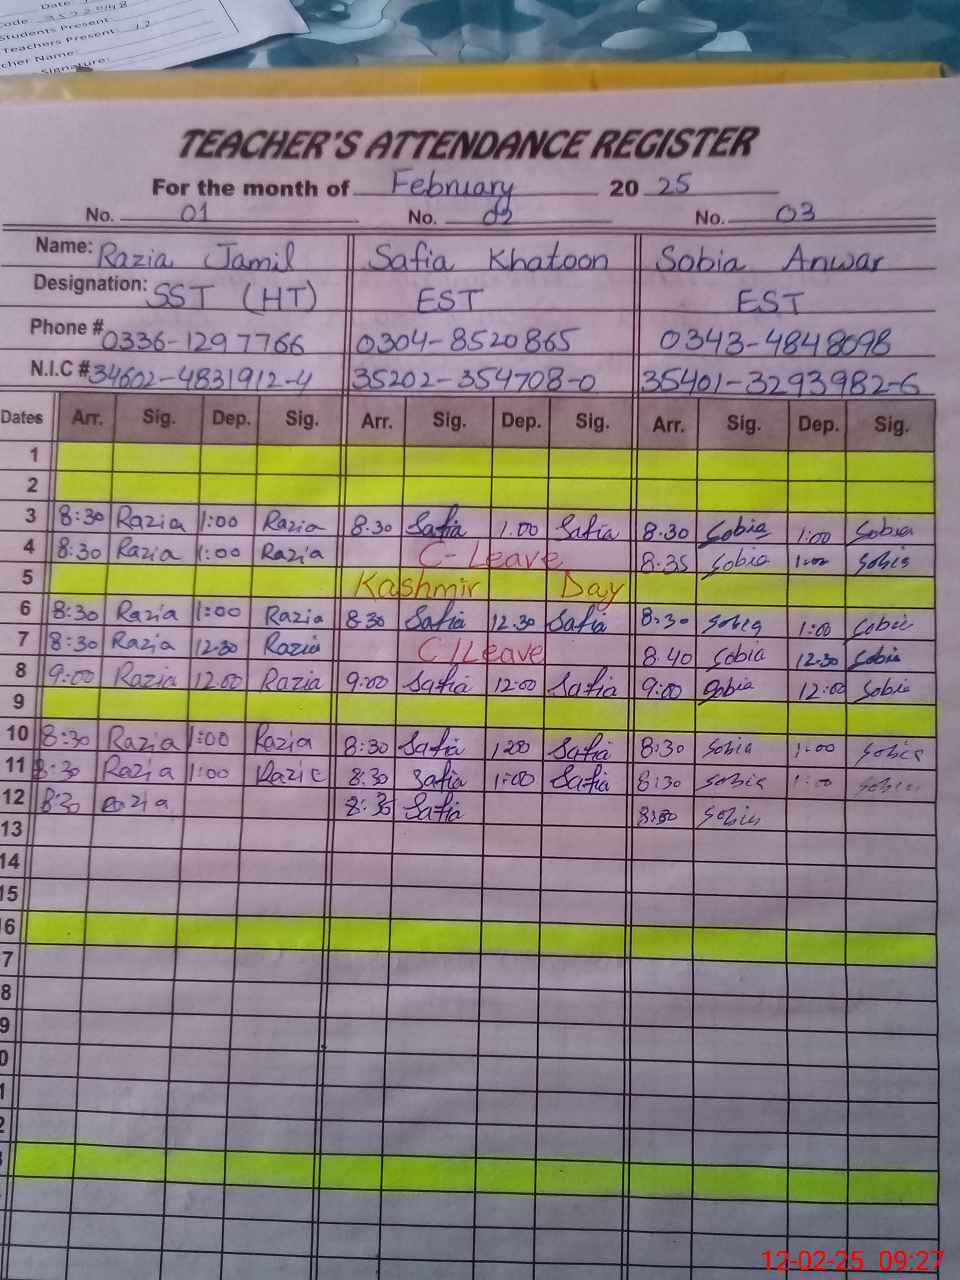 Date:
Code:
Students Present:
Teachers Present: 12
Signature:
TEACHER'S ATTENDANCE REGISTER
For the month of February 20 25
No. 01 No. 02 No. 03
Name: Razia Jamil Safia Khatoon Sobia Anwar
Designation: SST (HT) EST EST
Phone # 0336-1297766 0304-8520865 0343-4848098
N.I.C # 34602-4831912-4 35202-354708-0 35401-3293982-6
Dates Arr. Sig. Dep. Sig. Arr. Sig. Dep. Sig. Arr. Sig. Dep. Sig.
1
2
3 8:30 Razia 1:00 Razia 8.30 Safia 1.00 Safia 8.30 Sobia 1:00 Sobia
4 8:30 Razia 1:00 Razia C-Leave 8.35 Sobia 1:00 Sobia
5 Kashmir Day
6 8:30 Razia 1:00 Razia 8.30 Safia 12.30 Safia 8:30 Sobia 1:00 Sobia
7 8:30 Razia 12:30 Razia C/Leave 8.40 Sobia 12.30 Sobia
8 9:00 Razia 12:00 Razia 9:00 Safia 12:00 Safia 9:00 Sobia 12:00 Sobia
9
10 8:30 Razia 1:00 Razia 8:30 Safia 1:00 Safia 8:30 Sobia 1:00 Sobia
11 8:30 Razia 1:00 Razia 8:30 Safia 1:00 Safia 8:30 Sobia 1:00 Sobia
12 8:30 Razia 8:30 Safia 8:30 Sobia
13
14
15
6
7
8
9
0
1
2
12-02-25 09:27